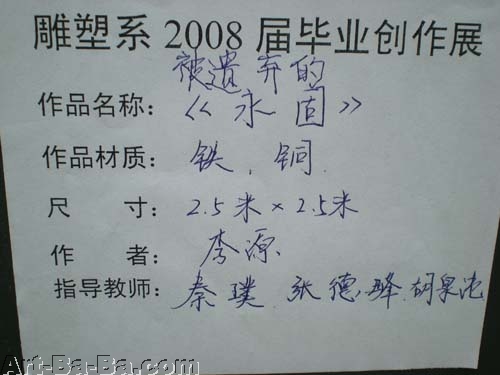 雕塑系 2008 届毕业创作展
被遗弃的
作品名称: 《永固》
作品材质: 铁、铜
尺 寸: 2.5米×2.5米
作 者: 李源
指导教师: 秦璞 张德峰 胡泉纯
Art-Ba-Ba.com
Art-Ba-Ba.com